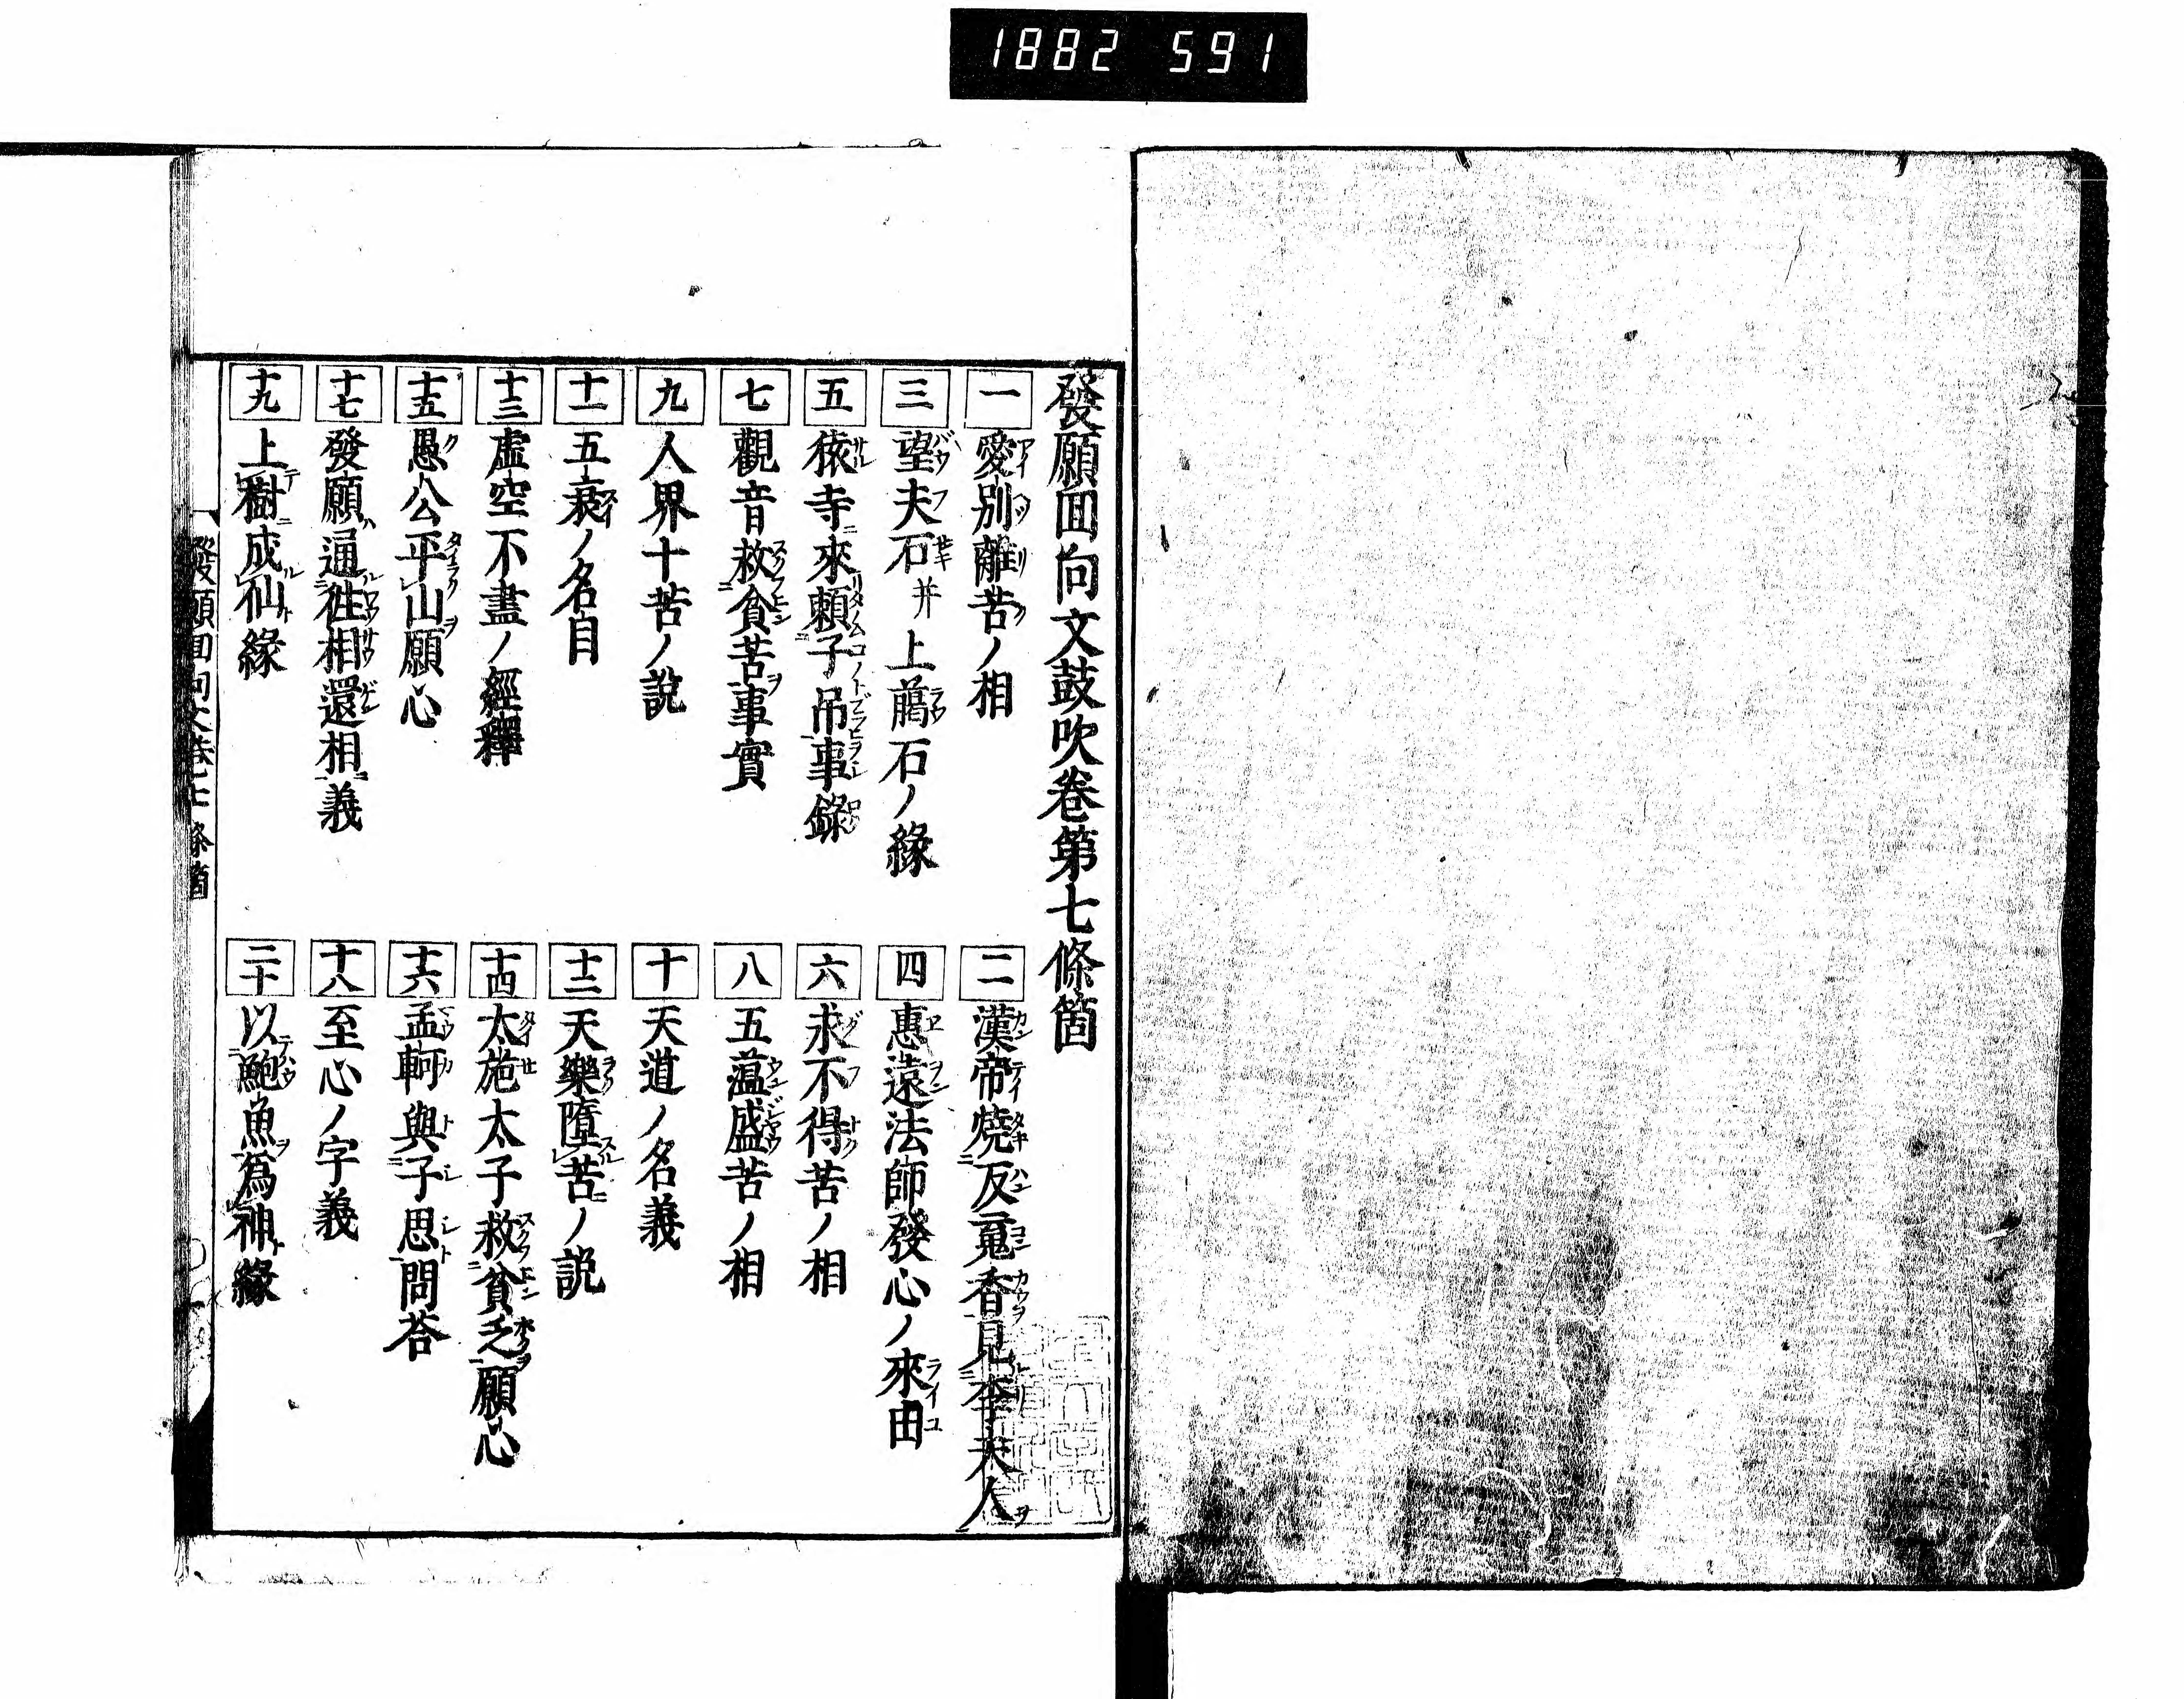 1882 591
發願囬向文鼓吹卷第七條箇
一 愛別離苦ノ相
二 漢帝燒反䰟香見李夫人
三 望夫石并上﨟石ノ緣
四 惠遠法師發心ノ來由
五 猿寺來賴子吊事錄
六 求不得苦ノ相
七 觀音救貧苦事實
八 五蘊盛苦ノ相
九 人界十苦ノ說
十 天道ノ名義
十一 五衰ノ名目
十二 天樂墮苦ノ説
十三 虛空不盡ノ經釋
十四 太施太子救貧乏願心
十五 愚公平山願心
十六 孟軻與子思問荅
十七 發願通徃相還相義
十八 至心ノ字義
十九 上樹成仙緣
二十 以鮑魚爲神緣
發願囬向文卷七 條箇